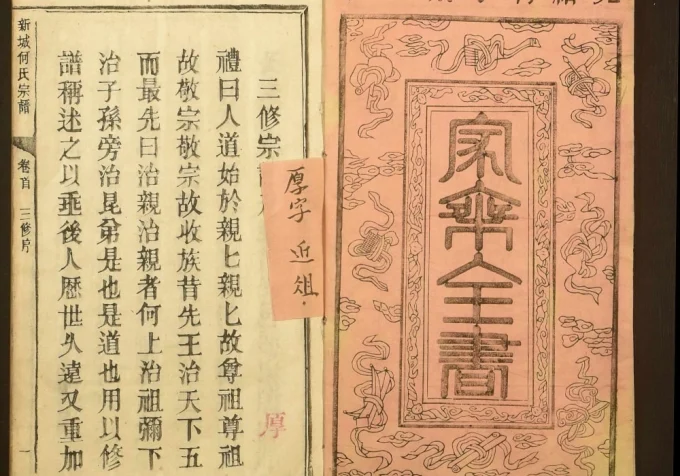 家乘全書
三修宗
厚字 近祖.
禮曰人道始於親匕親匕故尊祖尊祖
故敬宗敬宗故收族昔先王治天下五
而最先曰治親治親者何上治祖彌下
治子孫旁治昆弟是也是道也用以修
譜稱述之以垂後人歷世久遠又重加
厚
新城何氏宗譜 卷首 三修序 一